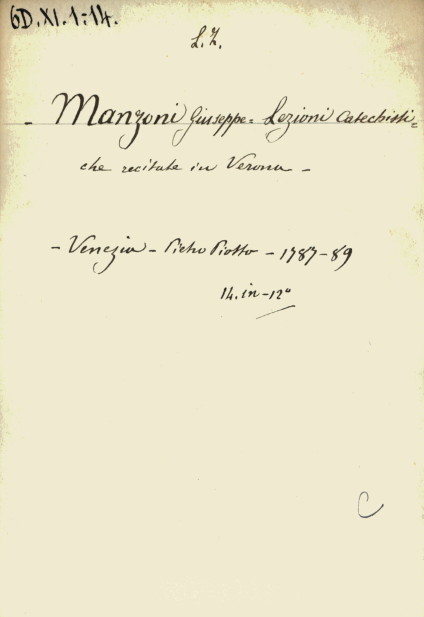 6D.XI.1:14.
L.Z.
- Manzoni Giuseppe = Lezioni Catechisti=
che recitate in Verona -
- Venezia - Pietro Piotto - 1787-89
14. in - 12°
C